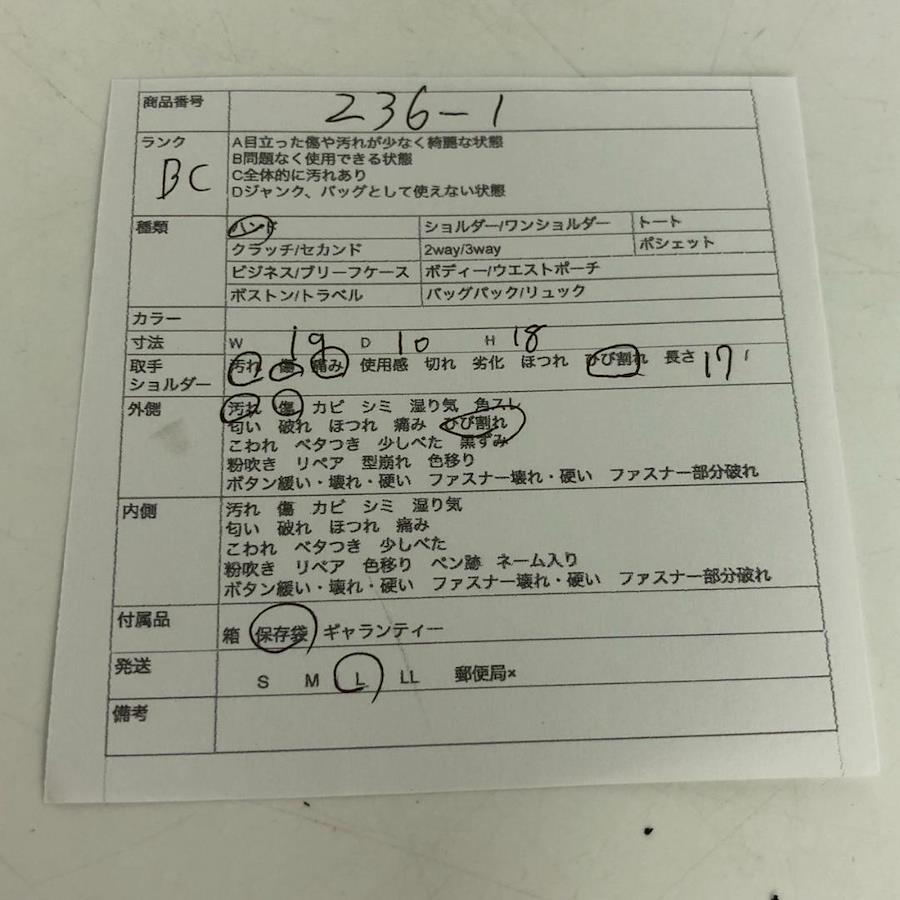 商品番号 236-1
ランク BC
A目立った傷や汚れが少なく綺麗な状態
B問題なく使用できる状態
C全体的に汚れあり
Dジャンク、バッグとして使えない状態
種類 ハンド ショルダー/ワンショルダー トート
クラッチ/セカンド 2way/3way ポシェット
ビジネス/ブリーフケース ボディー/ウエストポーチ
ボストン/トラベル バッグパック/リュック
カラー
寸法 W 19 D 10 H 18
取手 汚れ 傷 痛み 使用感 切れ 劣化 ほつれ ひび割れ 長さ 17
ショルダー
外側 汚れ 傷 カビ シミ 湿り気 角スレ
匂い 破れ ほつれ 痛み ひび割れ
こわれ ベタつき 少しべた 黒ずみ
粉吹き リペア 型崩れ 色移り
ボタン緩い・壊れ・硬い ファスナー壊れ・硬い ファスナー部分破れ
内側 汚れ 傷 カビ シミ 湿り気
匂い 破れ ほつれ 痛み
こわれ ベタつき 少しべた
粉吹き リペア 色移り ペン跡 ネーム入り
ボタン緩い・壊れ・硬い ファスナー壊れ・硬い ファスナー部分破れ
付属品 箱 保存袋 ギャランティー
発送 S M L LL 郵便局×
備考